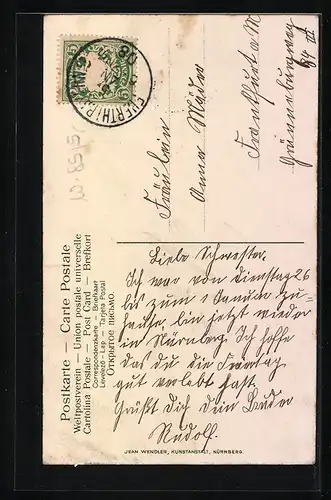 FUERTH (B.) 
Fräulein
Anna Mäder
Frankfurt a M
Grüneburgweg
84 III
Postkarte — Carte Postale
Weltpostverein — Union postale universelle
Cartolina Postale — Post Card — Brefkort
Correspondenzkarte — Briefkaart
Levelező-Lap. — Tarjeta Postal
Открытое письмо.
Liebe Schwester.
Ich war von Dienstag 26
bis zum 1 Januar zu-
hause, bin jetzt wieder
in Nürnberg. Ich hoffe
das du die Feiertag
gut verlebt hast.
Grüßt Dich dein Bruder
Rudolf.
JEAN WENDLER, KUNSTANSTALT, NÜRNBERG.